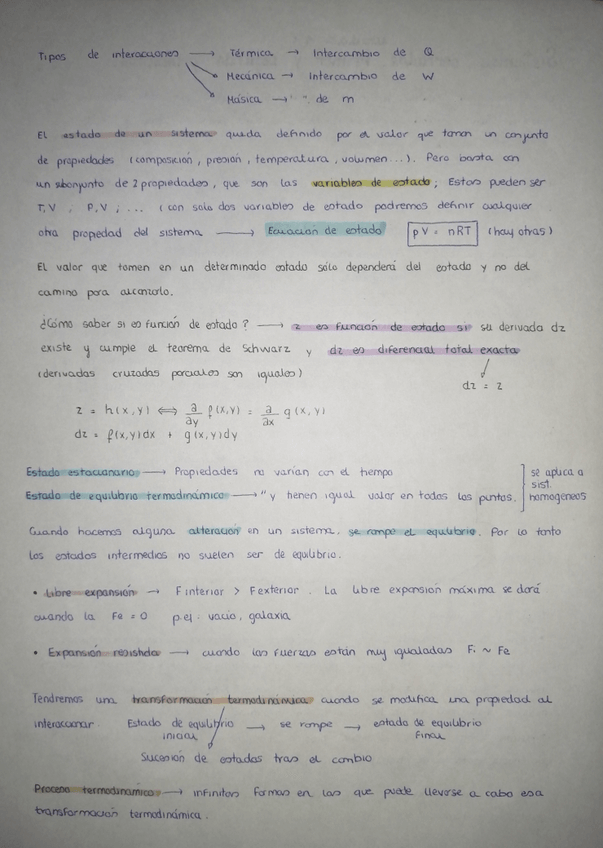 Tipos de interacciones → Térmica → Intercambio de Q
Mecánica → Intercambio de W
Másica → " " de m
El estado de un sistema queda definido por el valor que toman un conjunto
de propiedades (composición, presión, temperatura, volumen...). Pero basta con
un subconjunto de 2 propiedades, que son las variables de estado; Estas pueden ser
T,V , P,V ; ... (con solo dos variables de estado podremos definir cualquier
otra propiedad del sistema → Ecuación de estado pV = nRT (hay otras)
El valor que tomen en un determinado estado sólo dependerá del estado y no del
camino para alcanzarlo.
¿Cómo saber si es función de estado? → z es función de estado si su derivada dz
existe y cumple el teorema de Schwarz y dz es diferencial total exacta
(derivadas cruzadas parciales son iguales)
dz = z
z = h(x,y) ⟺ ∂/∂y f(x,y) = ∂/∂x g(x,y)
dz = f(x,y)dx + g(x,y)dy
Estado estacionario → Propiedades no varían con el tiempo
Estado de equilibrio termodinámico → " y tienen igual valor en todos los puntos.
se aplica a
sist.
homogéneos
Cuando hacemos alguna alteración en un sistema, se rompe el equilibrio. Por lo tanto
los estados intermedios no suelen ser de equilibrio.
• Libre expansión → F interior > F exterior. La libre expansión máxima se dará
cuando la Fe = 0 p.ej: vacío, galaxia
• Expansión resistida → cuando las fuerzas están muy igualadas Fi ~ Fe
Tendremos una transformación termodinámica cuando se modifica una propiedad al
interaccionar. Estado de equilibrio inicial → se rompe → estado de equilibrio final
Sucesión de estados tras el cambio
Proceso termodinámico → infinitas formas en las que puede llevarse a cabo esa
transformación termodinámica.